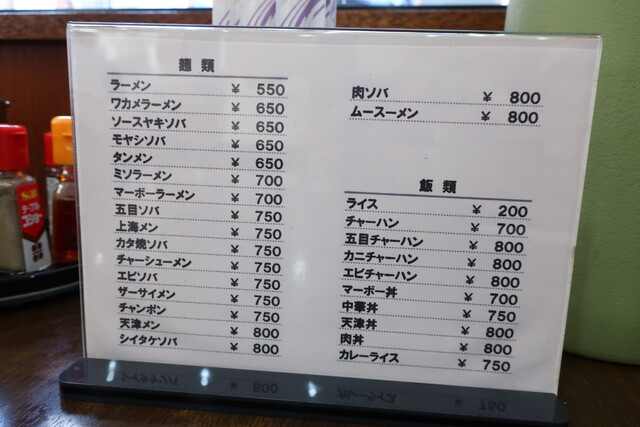 麺類
ラーメン ￥ 550
ワカメラーメン ￥ 650
ソースヤキソバ ￥ 650
モヤシソバ ￥ 650
タンメン ￥ 650
ミソラーメン ￥ 700
マーボーラーメン ￥ 700
五目ソバ ￥ 750
上海メン ￥ 750
カタ焼ソバ ￥ 750
チャーシューメン ￥ 750
エビソバ ￥ 750
ザーサイメン ￥ 750
チャンポン ￥ 750
天津メン ￥ 800
シイタケソバ ￥ 800
肉ソバ ￥ 800
ムースーメン ￥ 800
飯類
ライス ￥ 200
チャーハン ￥ 700
五目チャーハン ￥ 800
カニチャーハン ￥ 800
エビチャーハン ￥ 800
マーボー丼 ￥ 700
中華丼 ￥ 750
天津丼 ￥ 800
肉丼 ￥ 800
カレーライス ￥ 750
S&B
テーブル
コショー